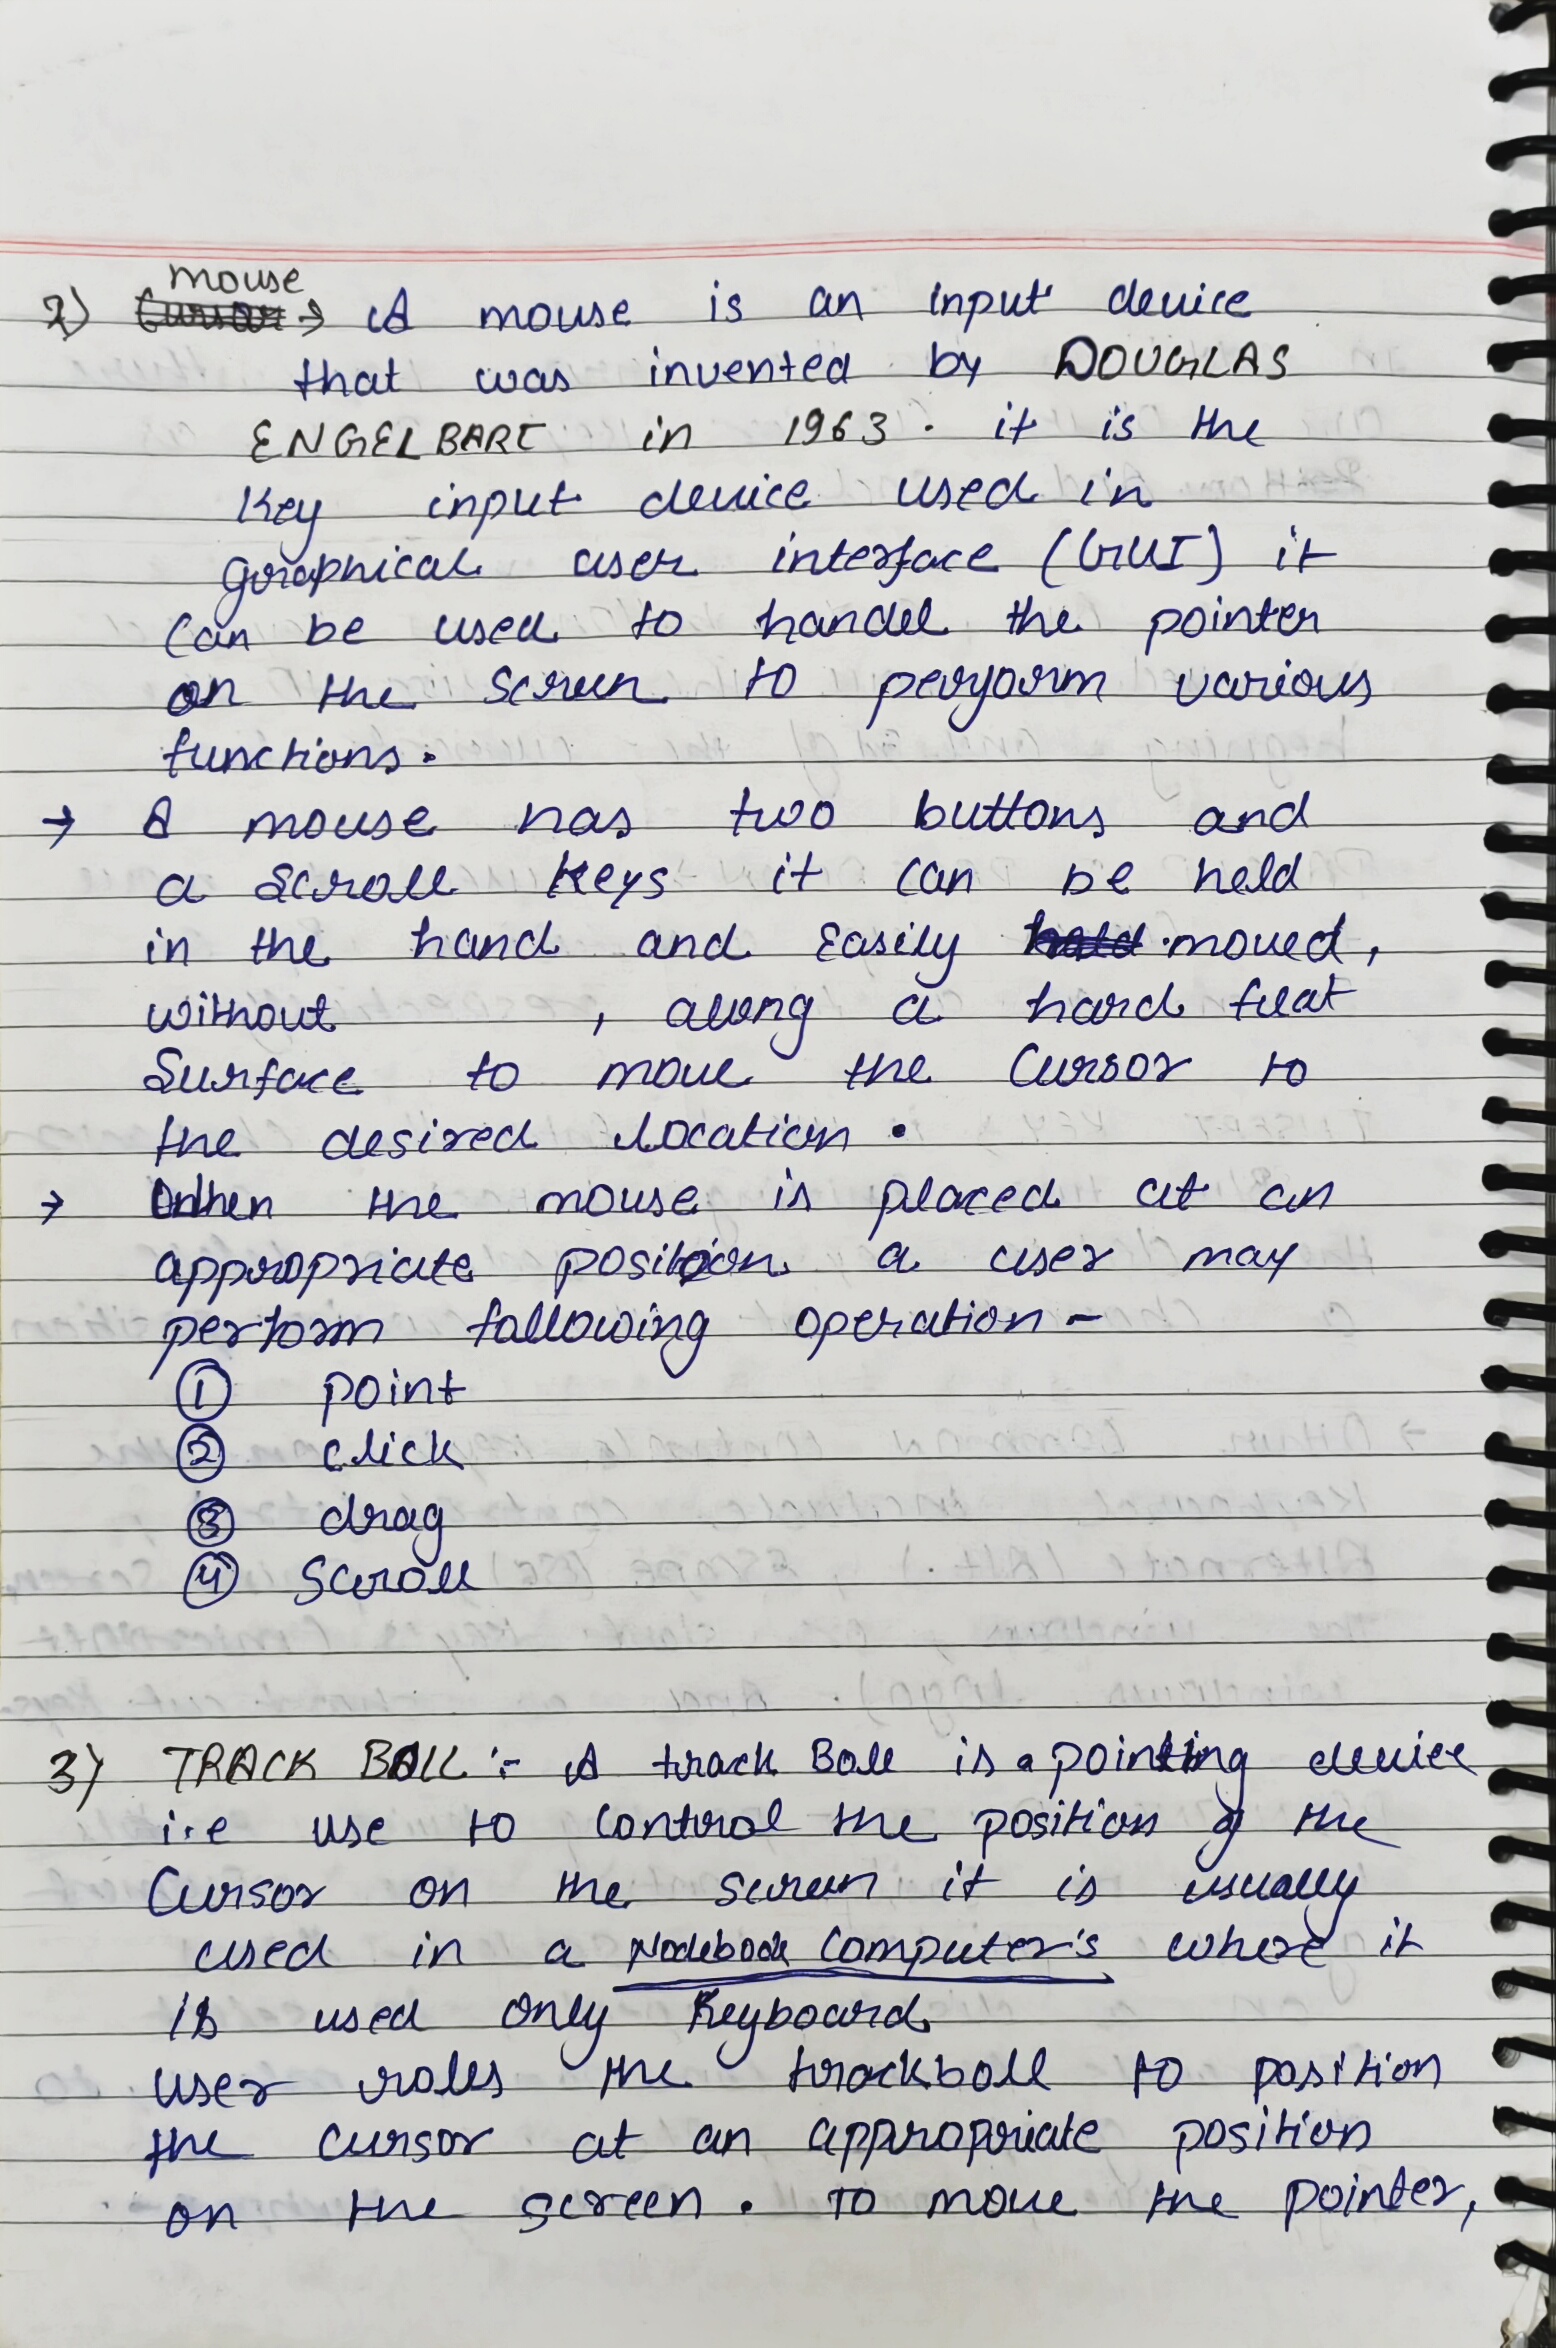 mouse
2) Cursor → A mouse is an input device
that was invented by DOUGLAS
ENGELBART in 1963. it is the
Key input device used in
graphical user interface (GUI) it
Can be used to handel the pointer
on the screen to perform various
functions.
→ A mouse has two buttons and
a Scroll Keys it can be held
in the hand and Easily hold moved,
without , along a hard flat
Surface to move the Cursor to
the desired location.
→ When the mouse is placed at an
appropriate position a user may
perform following operation -
① point
② click
③ drag
④ Scroll
3) TRACK BALL :- A track Ball is a pointing device
i.e use to Control the position of the
Cursor on the screen it is usually
used in a Notebook Computer's where it
is used only Keyboard
user roles the trackball to position
the cursor at an appropriate position
on the screen. To move the pointer,